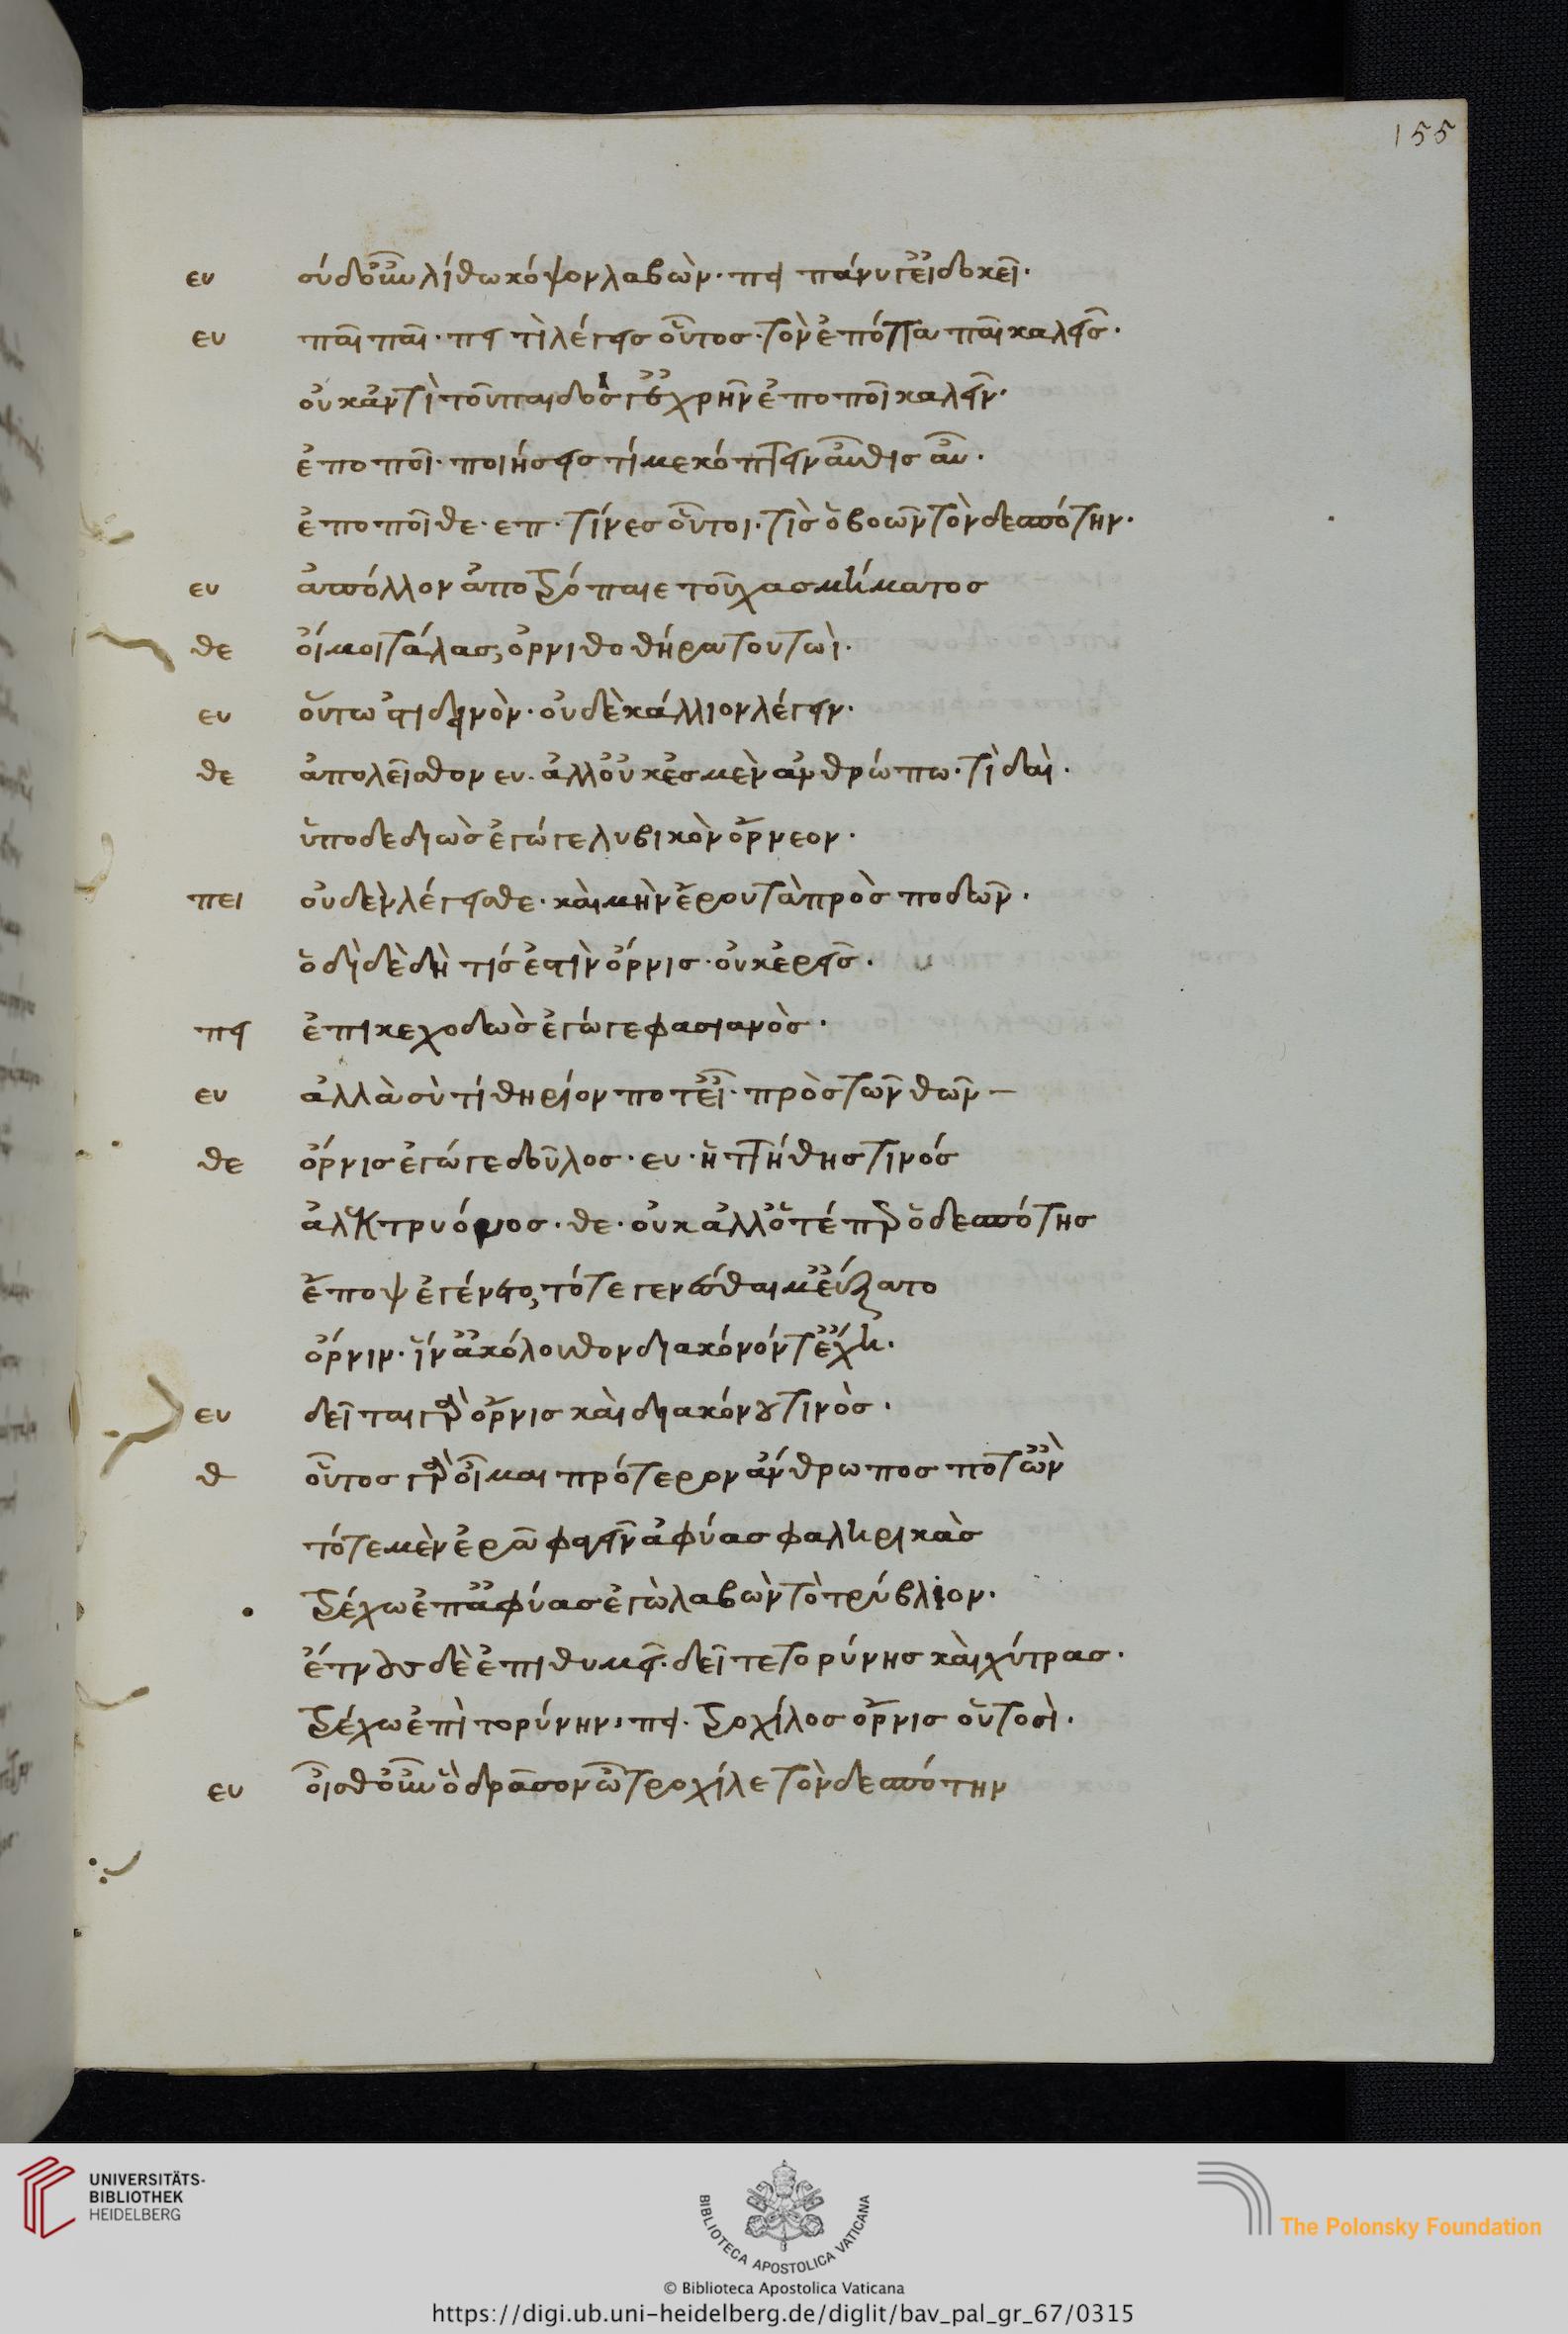 155
ευ σύ δ' οὖν λίθω κόψον λαβὼν· πει πάνυ γ' εἰ δοκεῖ·
ευ παῖ παῖ· πει τὶ λέγεις οὗτος· τὸν ἔποπα παῖ καλεῖς·
οὐκ ἀντὶ τοῦ παιδός γ' ὀχρῆν ἐποποῖ καλεῖν·
ἐποποῖ· ποιήσεις τί με κόπτειν αὖθις αὖ·
ἐποποῖ θε· επ· τίνες οὗτοι· τὶς ὁ βοῶν τὸν δεσπότην·
ευ ἄπολλον ἀποτρόπαιε τοῦ χασμήματος
θε οἴμοι τάλας, ὀρνιθοθήρα τουτωὶ·
ευ οὕτω στι δεινὸν· οὐδὲ κάλλιον λέγειν·
θε ἀπολεῖσθον ευ· ἀλλ' οὐκ ἐσμὲν ἀνθρώπω· τὶ δαὶ·
ὑποδεδιὼς ἐγώγε λυβικὸν ὄρνεον·
πει οὐδὲν λέγεις θε· καὶ μὴν ἔρου τὰ πρὸς ποδῶν·
ὁδὶ δὲ δὴ τίς ἐστὶν ὄρνις· οὐκ ἐρεῖς·
πει ἐπικεχοδὼς ἐγώγε φασιανὸς·
ευ ἀλλὰ σὺ τί θηρίον ποτ' εἶ· πρὸς τῶν θεῶν
θε ὄρνις ἐγώγε δοῦλος· ευ· ἡττήθης τινός
ἀλεκτρυόνος· θε· οὐκ ἀλλ' ὅτέ περ ὁ δεσπότης
ἔποψ ἐγένετο, τότε γενέσθαι μ' εὔξατο
ὄρνιν· ἵν' ἀκόλουθον διακόνόν τ' ἔχη·
ευ δεῖται γὰρ ὄρνις καὶ διακόνου τινὸς·
θ οὗτος γὰρ οἶμαι πρότερον ἄνθρωπος ποτ' ὢν
τότε μὲν ἐρᾶ φαγεῖν ἀφύας φαληρικὰς
τρέχω ἐπ' ἀφύας ἐγὼ λαβὼν τὸ τρύβλιον·
ἔτνους δὲ ἐπιθυμεῖ· δεῖ τε τορύνης καὶ χύτρας·
τρέχω ἐπὶ τορύνην, πει· τροχίλος ὄρνις οὑτοσὶ·
ευ οἶσθ' οὖν ὃ δρᾶσον ὦ τροχίλε τὸν δεσπότην
UNIVERSITÄTS-
BIBLIOTHEK
HEIDELBERG
BIBLIOTECA APOSTOLICA VATICANA
The Polonsky Foundation
© Biblioteca Apostolica Vaticana
https://digi.ub.uni-heidelberg.de/diglit/bav_pal_gr_67/0315